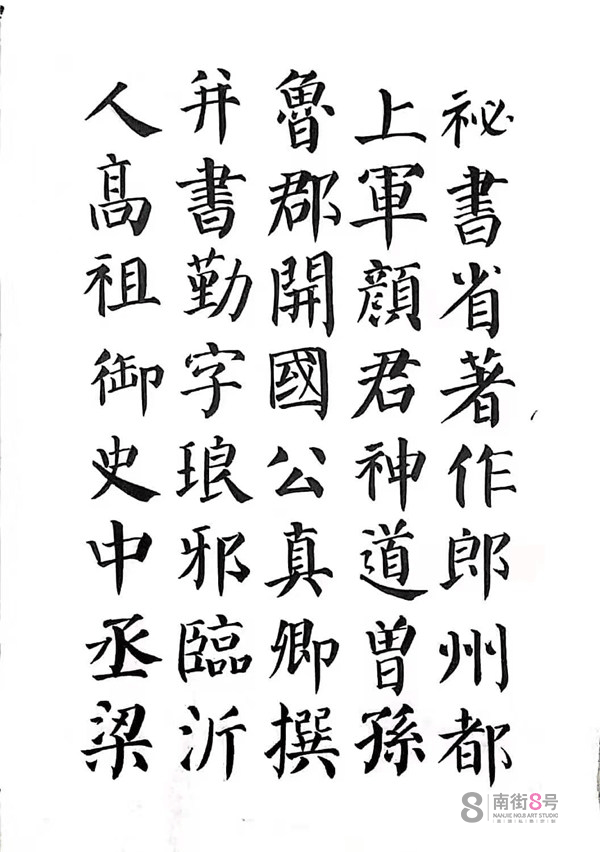 祕書省著作郎州都
上軍顏君神道曾孫
魯郡開國公真卿撰
并書勤字琅邪臨沂
人高祖御史中丞梁
8 南街8号
NANJIE NO.8 ART STUDIO